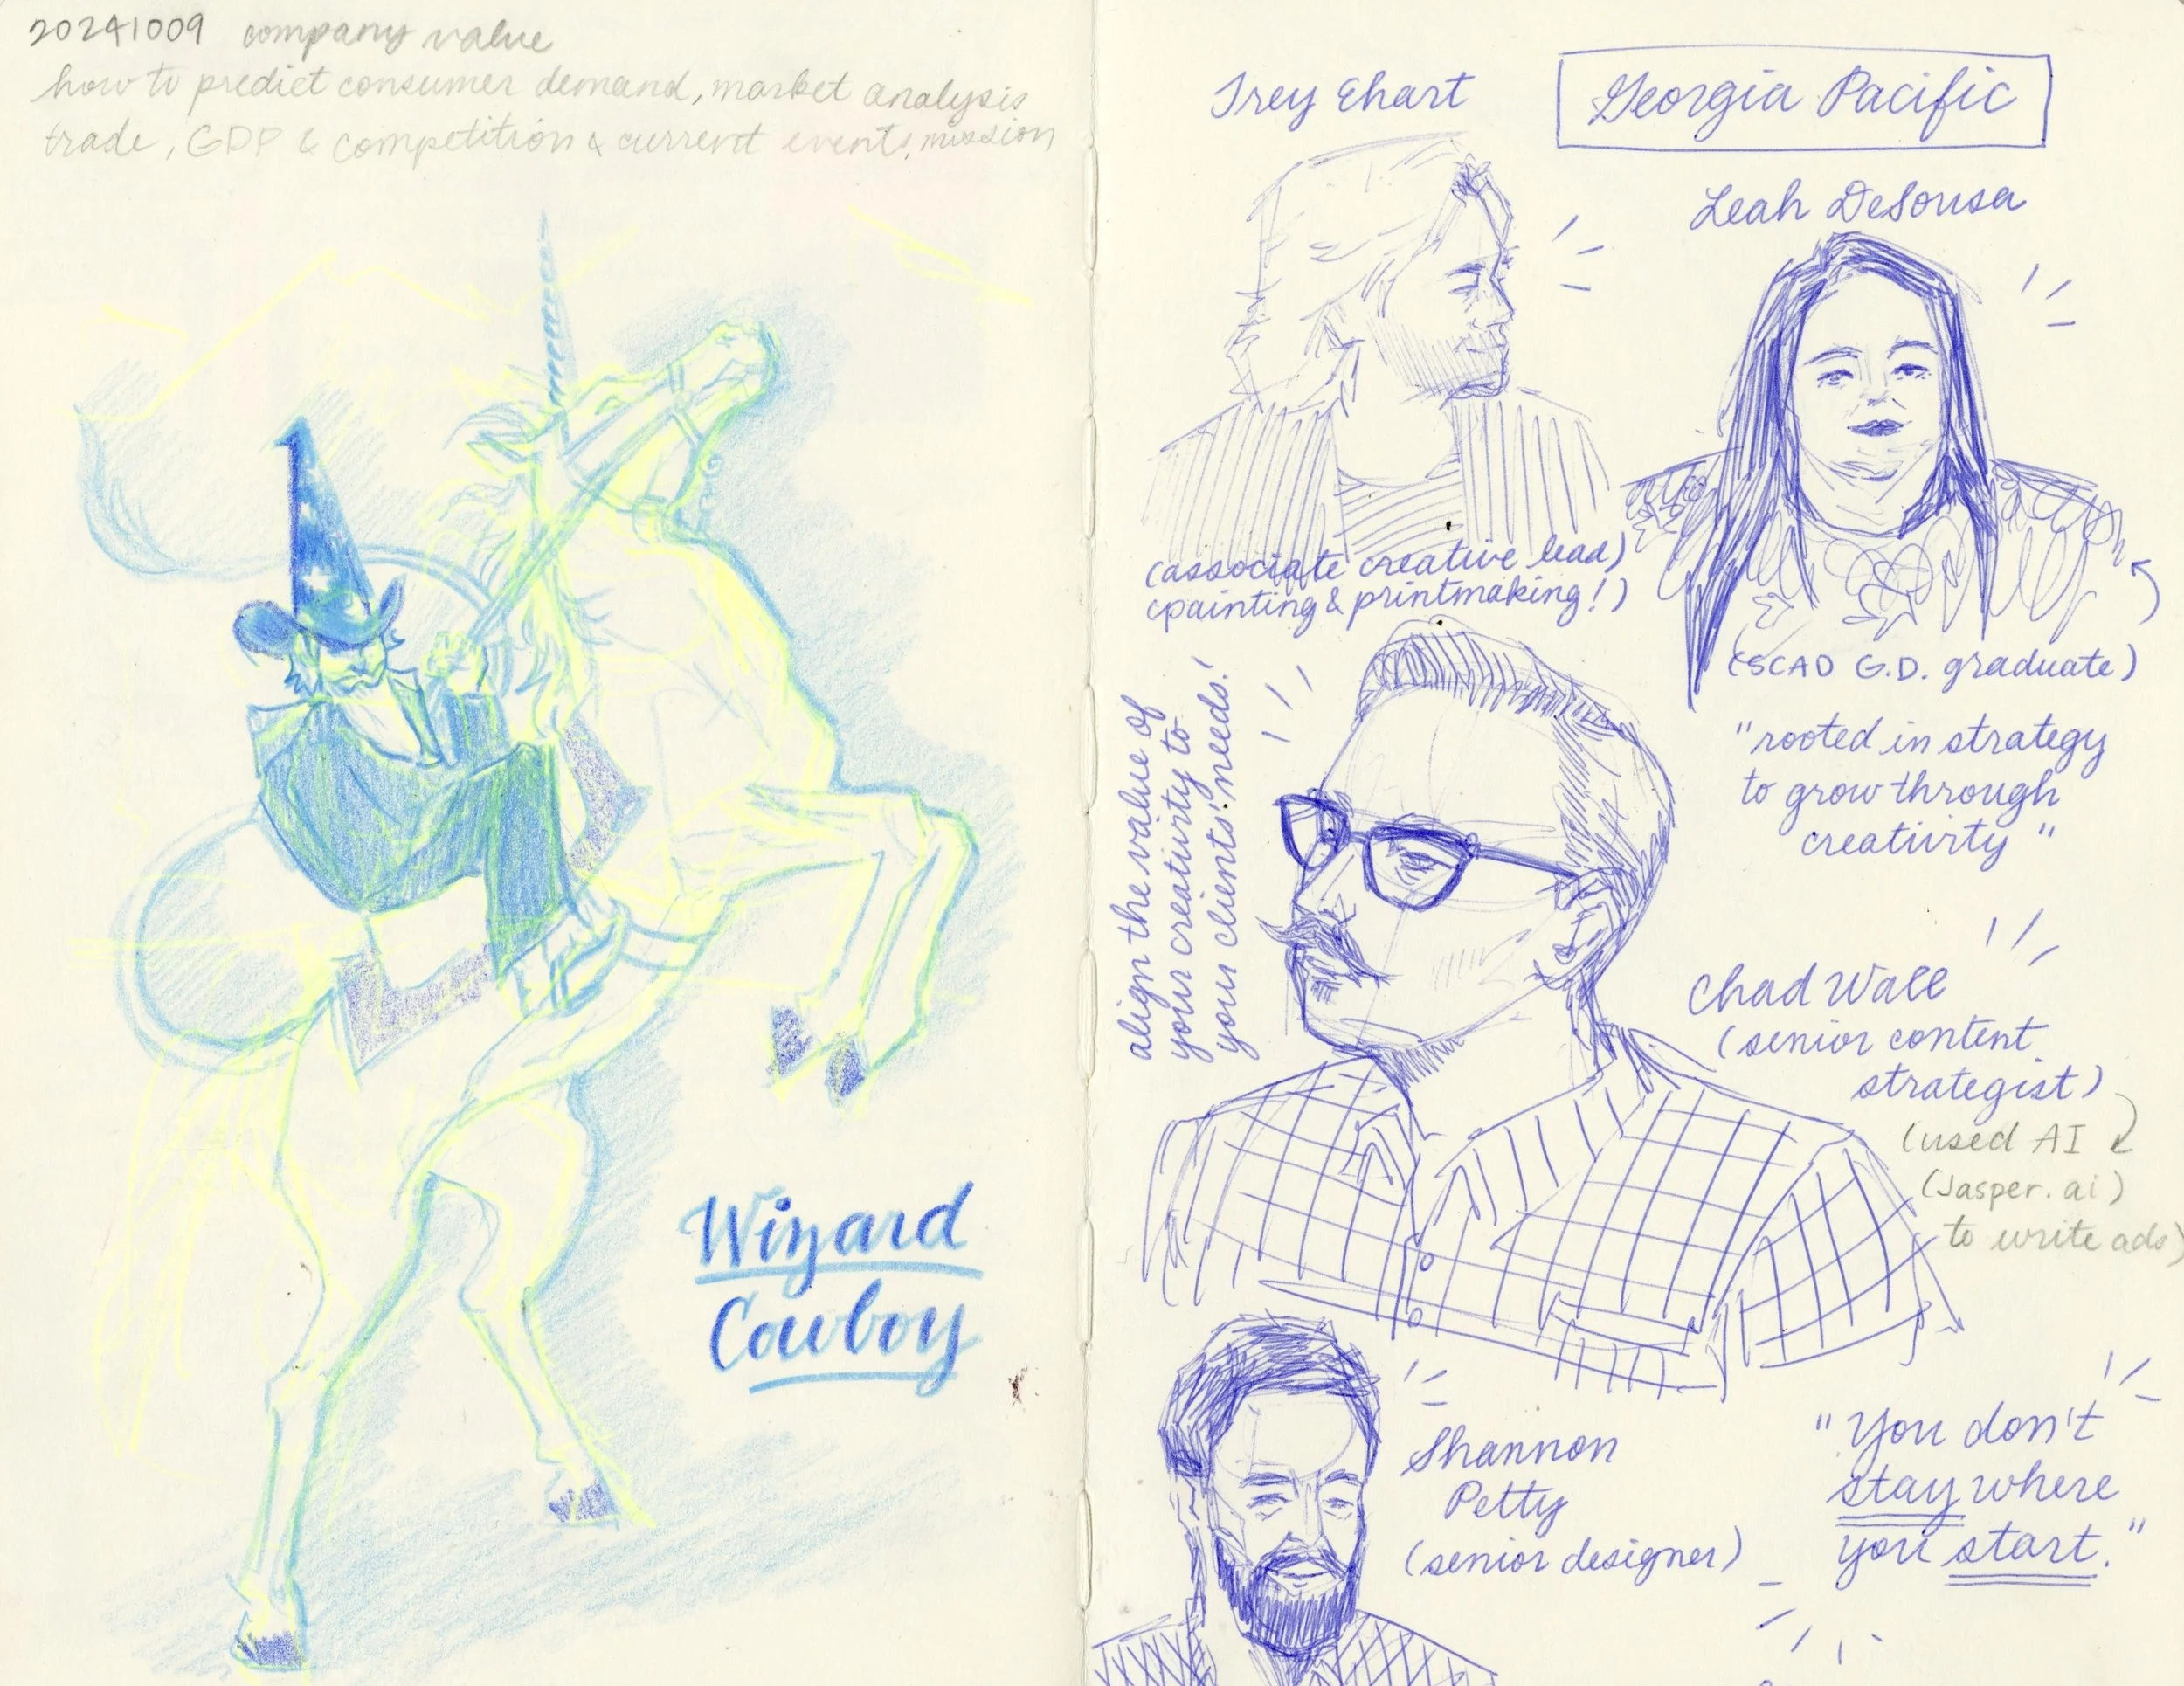 20241009 company value
how to predict consumer demand, market analysis
trade, GDP & competition & current events, mission
Wizard
Cowboy
Trey Ehart
Georgia Pacific
Leah DeSousa
(associate creative lead)
(painting & printmaking!)
(SCAD G.D. graduate)
"rooted in strategy
to grow through
creativity"
align the value of
your creativity to
your clients' needs!
Chad Wall
(senior content
strategist)
(used AI
(Jasper.ai)
to write ads)
Shannon
Petty
(senior designer)
"You don't
stay where
you start."